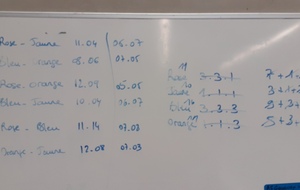 Rose - Jaune 11.04 06.07
Bleu - orange 08.06 07.05
Rose - orange 12.09 05.05
Bleu - Jaune 10.04 06.07
Rose - Bleu 11.14 07.03
Orange - Jaune 12.08 07.03
Rose 3-3-1 7+1+
Jaune 1-1-1 3+1+2
Bleu 3-3-3 5+3+
Orange 1-1-3 5+3+